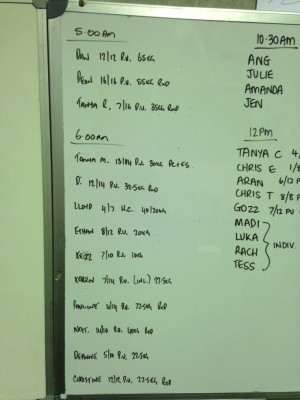 5:00AM
DAN 12/12 P.U. 65KG
DEON 16/16 P.U. 55KG RXD
TANYA R. 7/16 P.U. 35KG RXD
6:00AM
TANYA M. 13/14 P.U. 30KG
D. 12/14 P.U. 32.5KG RXD
LLOYD 4/7 H.C. 40/20KG
ETHAN 8/12 P.U. 20KG
7/10 P.U. 10KG
KARREN 7/14 P.U. (INC.) 22.5KG
PAULINE P.U. 22.5KG RXD
NAT. P.U. RXD
DEANNE 5/10 P.U. 22.5KG
CHRISTINE 12/12 P.U. 22.5KG RXD
10:30AM
ANG
JULIE
AMANDA
JEN
12PM
TANYA C 4/
CHRIS E 1/8
ARAN 6/12 P
CHRIS T 8/8 P
GOZZ 7/12 PU
MADI
LUKA
RACH
TESS
INDIV.